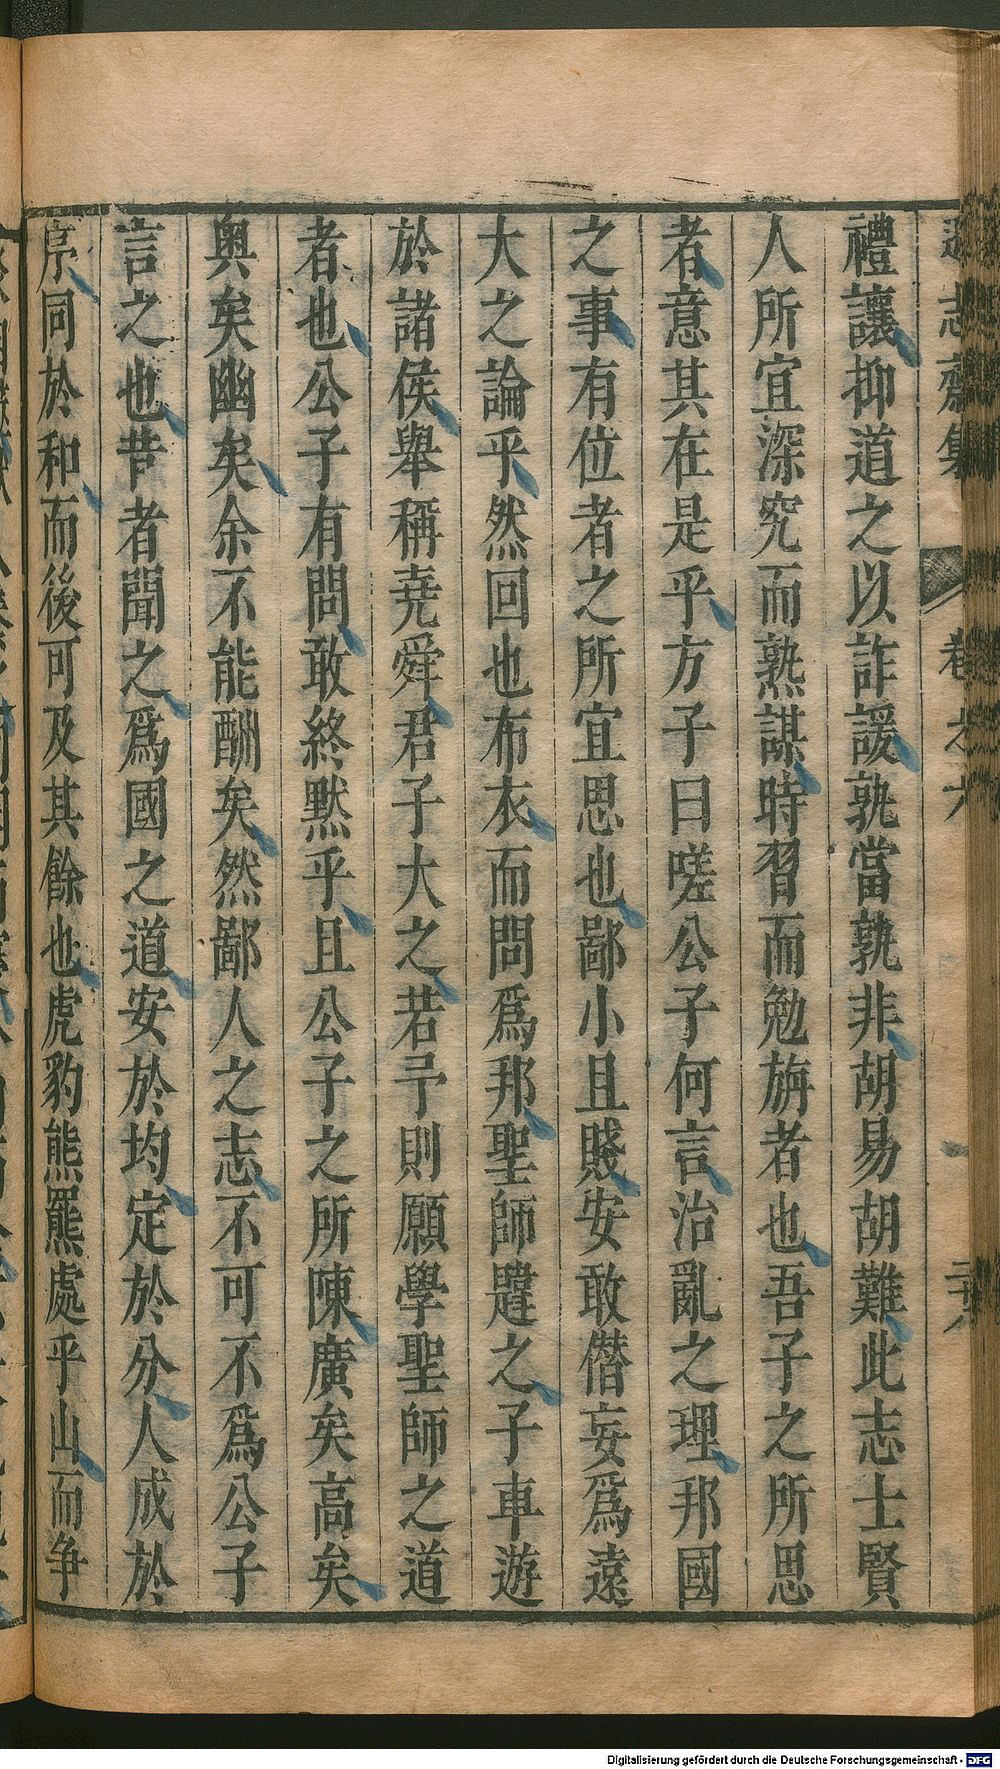 遜志齋集 卷之六
禮讓抑道之以詐諼孰當孰非胡易胡難此志士賢
人所宜深究而熟謀時習而勉旃者也吾子之所思
者意其在是乎方子曰嗟公子何言治亂之理邦國
之事有位者之所宜思也鄙小且賤安敢僭妄爲遠
大之論乎然回也布衣而問爲邦聖師韙之子車遊
於諸侯舉稱堯舜君子大之若予則願學聖師之道
者也公子有問敢終默乎且公子之所陳廣矣高矣
奥矣幽矣余不能酬矣然鄙人之志不可不爲公子
言之也昔者聞之爲國之道安於均定於分人成於
序同於和而後可及其餘也虎豹熊羆處乎山而争
Digitalisierung gefördert durch die Deutsche Forschungsgemeinschaft - DFG